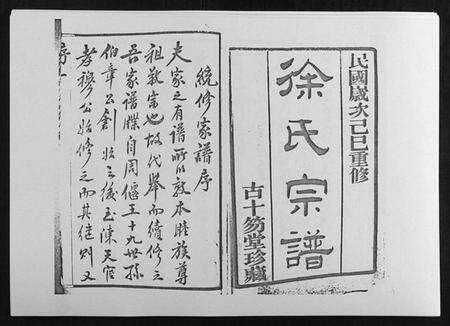 民國歲次己巳重修
徐氏宗譜
古十笏堂珍藏
統修家譜序
夫家之有譜所以敦本睦族尊
祖敬宗也故代舉而續修之
吾家譜牒自周偃王十九世孫
伯章公創始之後至陳天官
孝穆公始修之而其繼則又
序